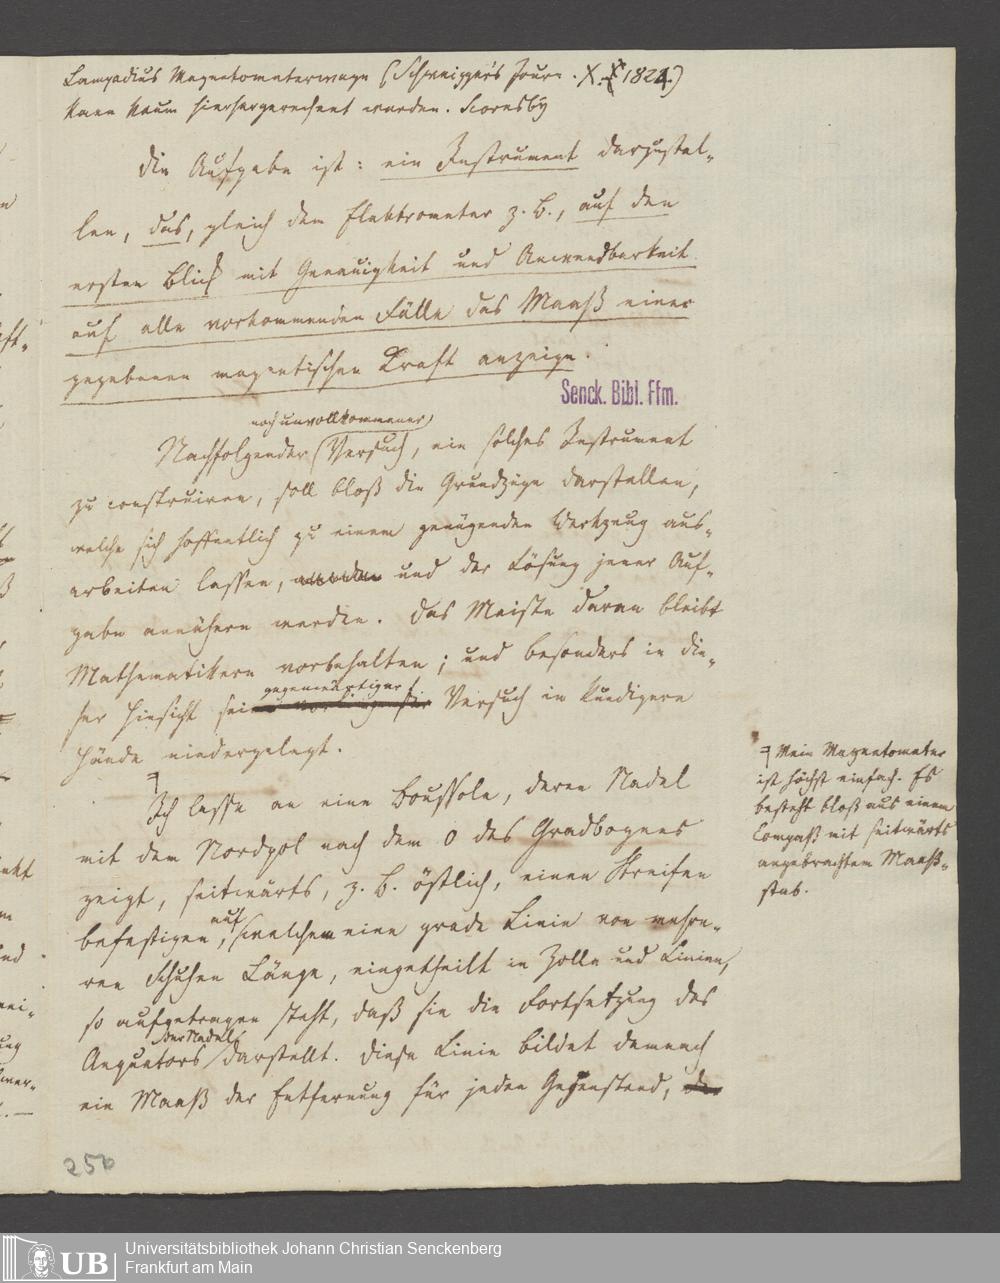 Lampadius Magnetometerwage (Schweigger's Journ. X. 1821.)
kann kaum hierhergerechnet werden. Scoresby
Die Aufgabe ist: ein Instrument darzustel-
len, das, gleich dem Elektrometer z. B., auf den
ersten Blick mit Genauigkeit und Anwendbarkeit
auf alle vorkommenden Fälle das Maaß einer
gegebenen magnetischen Kraft anzeige.
Senck. Bibl. Ffm.
noch unvollkommener
Nachfolgender Versuch, ein solches Instrument
zu construiren, soll bloß die Grundzüge darstellen,
welche sich hoffentlich zu einem genügenden Werkzeug aus-
arbeiten lassen, und der Lösung jener Auf-
gabe annähern werden. Das Meiste daran bleibt
Mathematikern vorbehalten; und besonders in die-
gegenwärtiger
ser Hinsicht sei Versuch in kundigere
Hände niedergelegt.
Ich lasse an eine Boussole, deren Nadel
mit dem Nordpol nach dem 0 des Gradbogens
zeigt, seitwärts, z. B. östlich, einen Streifen
auf
befestigen, welchem eine grade Linie von mehre-
ren Schuhen Länge, eingetheilt in Zolle und Linien,
so aufgetragen steht, daß sie die Fortsetzung des
der Nadel
Aequators darstellt. Diese Linie bildet demnach
ein Maaß der Entfernung für jeden Gegenstand,
Mein Magnetometer
ist höchst einfach. Es
besteht bloß aus einem
Compaß mit seitwärts
angebrachtem Maaß-
stab.
250
UB
Universitätsbibliothek Johann Christian Senckenberg
Frankfurt am Main